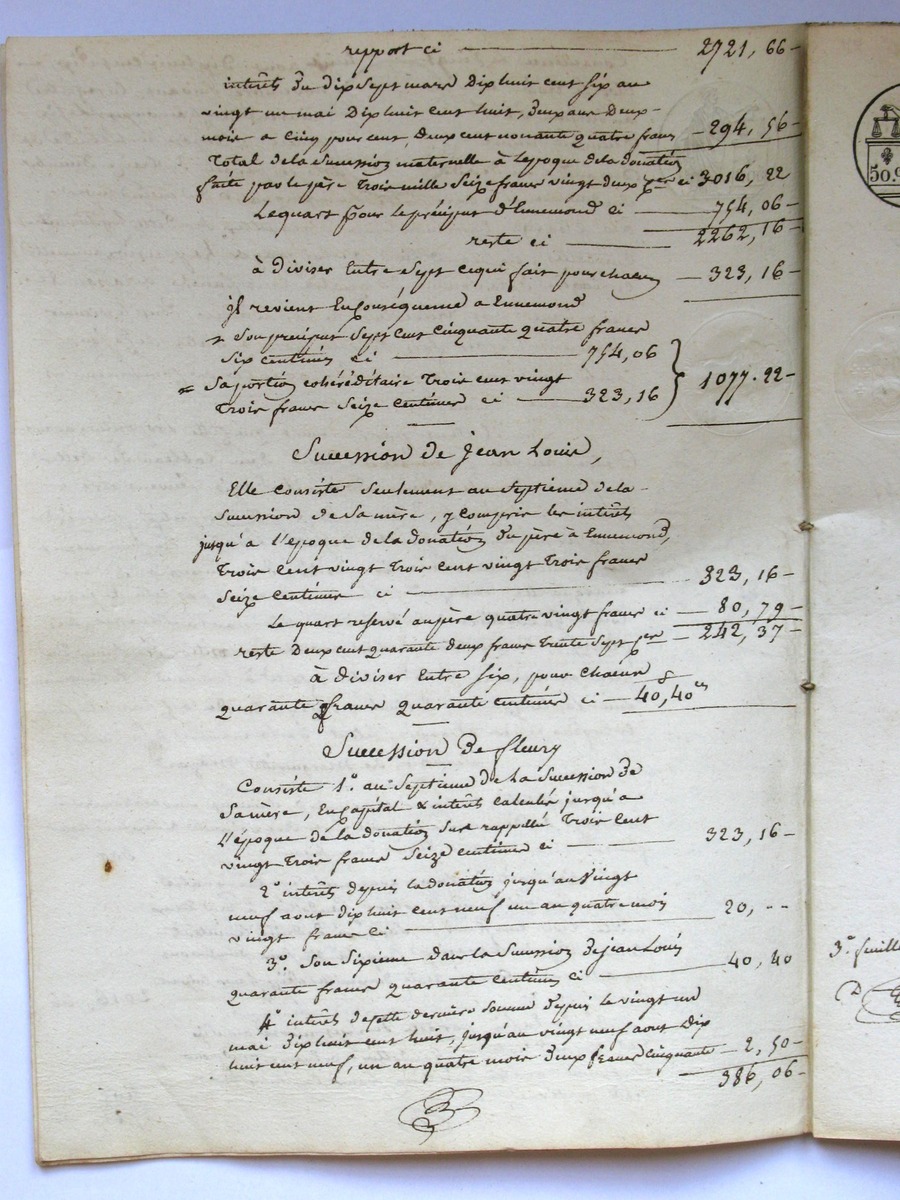 report ci 2721, 66
intérêts du dix Sept mars Dix huit cent six au
vingt un mai Dix huit cent huit, deux ans deux
mois a cinq pour cent, deux cent nonante quatre francs 294, 56
Total de la Succession maternelle à Lépoque de la donation
faite par le père Trois mille Seize francs vingt deux ci 3016, 22
Le quart pour le préciput d'Ennemond ci 754, 06
reste ci 2262, 16
à diviser Entre Sept ce qui fait pour chacun 323, 16
jl revient En Conséquence a Ennemond
Son preciput Sept Cent Cinquante quatre francs
Six centimes ci 754, 06
= Sa portion cohéréditaire Trois cent vingt
Trois francs Seize Centimes ci 323, 16 } 1077. 22
Succession de jean Louis,
Elle consiste Seulement au Septieme de la
Succession de Sa mère, y compris les intérêts
jusqu'a l'époque de la donation du père à Ennemond,
Trois Cent vingt Trois Cent vingt Trois francs
Seize Centimes ci 323, 16
Le quart reservé au père quatre vingt francs ci 80, 79
reste Deux cent quarante deux francs Trente Sept 242, 37
à diviser Entre Six, pour Chacun
quarante francs quarante centimes ci 40, 40
Succession De fleury
Consiste 1°. au Septieme de la Succession de
Sa mère, En capital & intérêts calculés jusqu'a
l'époque de la donation Sus rappellée Trois Cent
vingt Trois francs Seize centimes ci 323, 16
2° intérêts depuis la donation jusqu'au Vingt
neuf aout dix huit cent neuf un an quatre mois
vingt francs Ci 20, --
3°. Son Sixieme dans la Succession De jean Louis
quarante francs quarante centimes ci 40, 40
4° intérêts de cette dernière Somme depuis le vingt un
mai Dix huit cent huit, jusqu'au vingt neuf aout Dix
huit cent neuf, un an quatre mois Deux francs cinquante 2, 50
386, 06
50,
3e. feuille